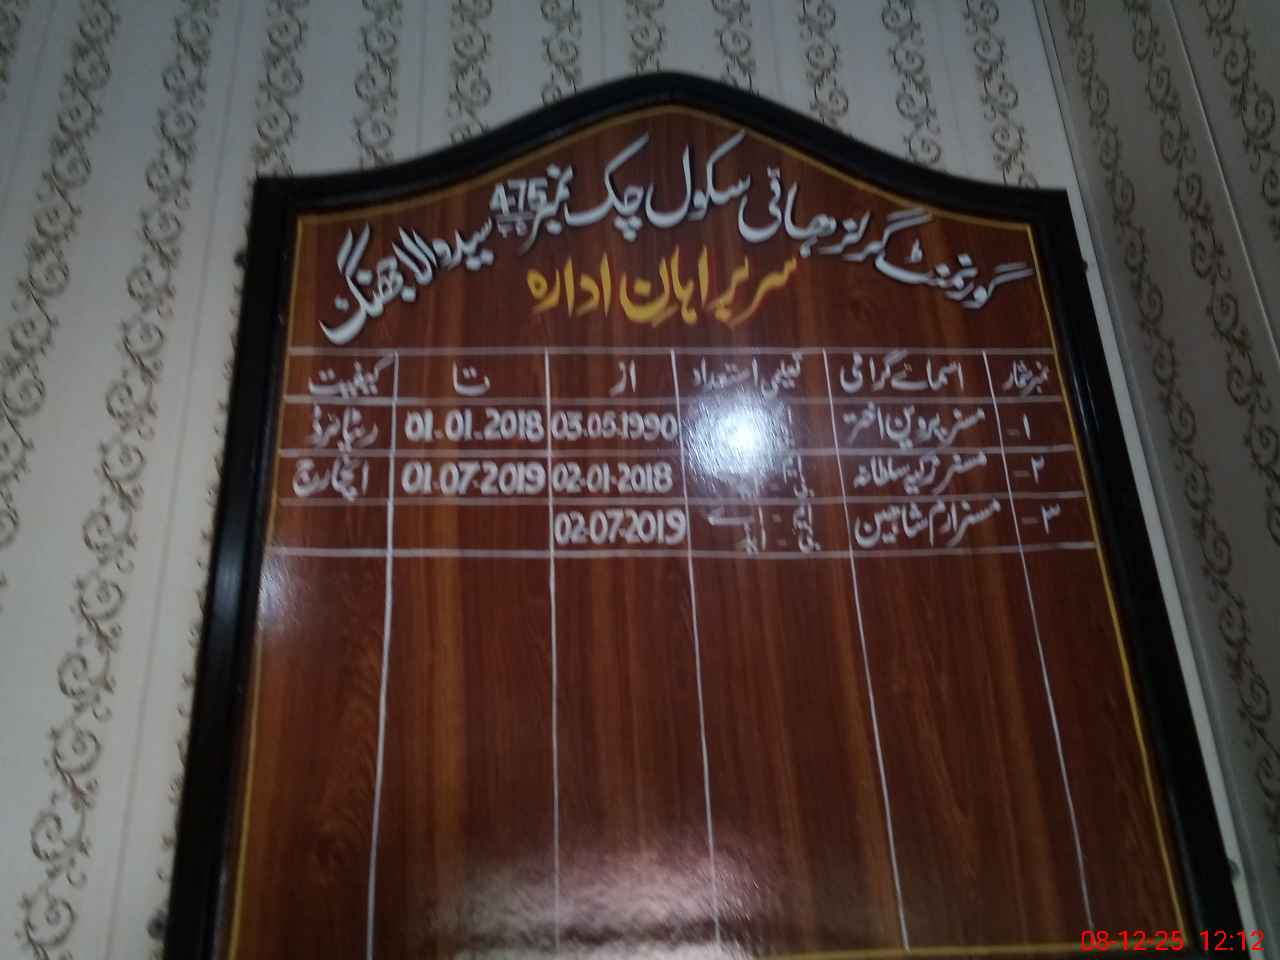 گورنمنٹ گرلز ہائی سکول چک نمبر 475 ج ب سیدوالا جھنگ
سربراہان ادارہ
نمبر شمار اسمائے گرامی تعلیمی استعداد از تا کیفیت
۱- مسز پروین اختر 03.05.1990 01.01.2018 ریٹائرڈ
۲- مسز زکیہ سلطانہ 02.01.2018 01.07.2019 انچارج
۳- مسز ارم شاہین 02.07.2019
08-12-25 12:12